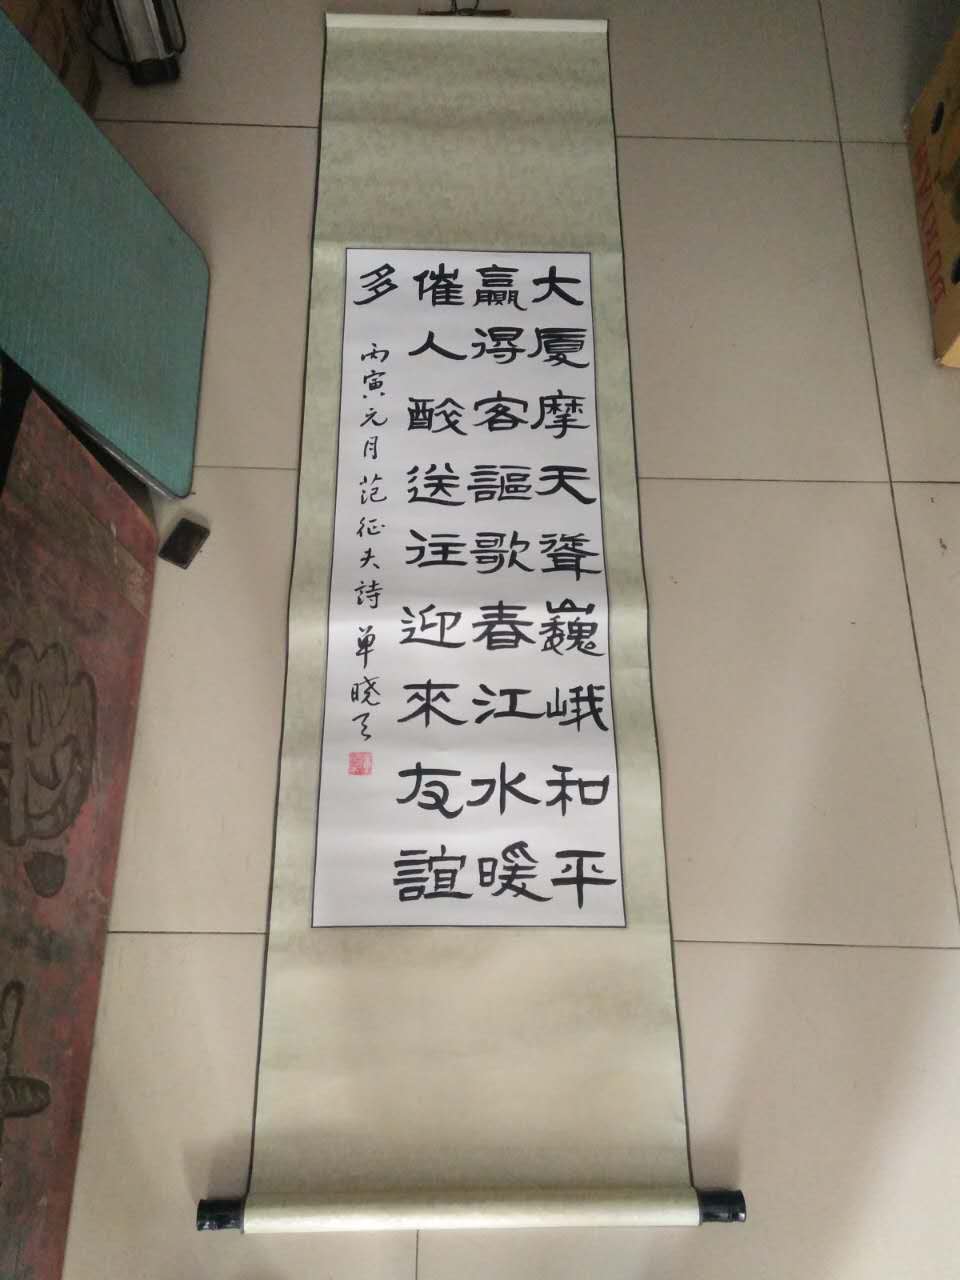 大厦摩天聳巍峨和平
贏得客謳歌春江水暖
催人送往迎來友誼
多
丙寅元月范征夫詩单晓天